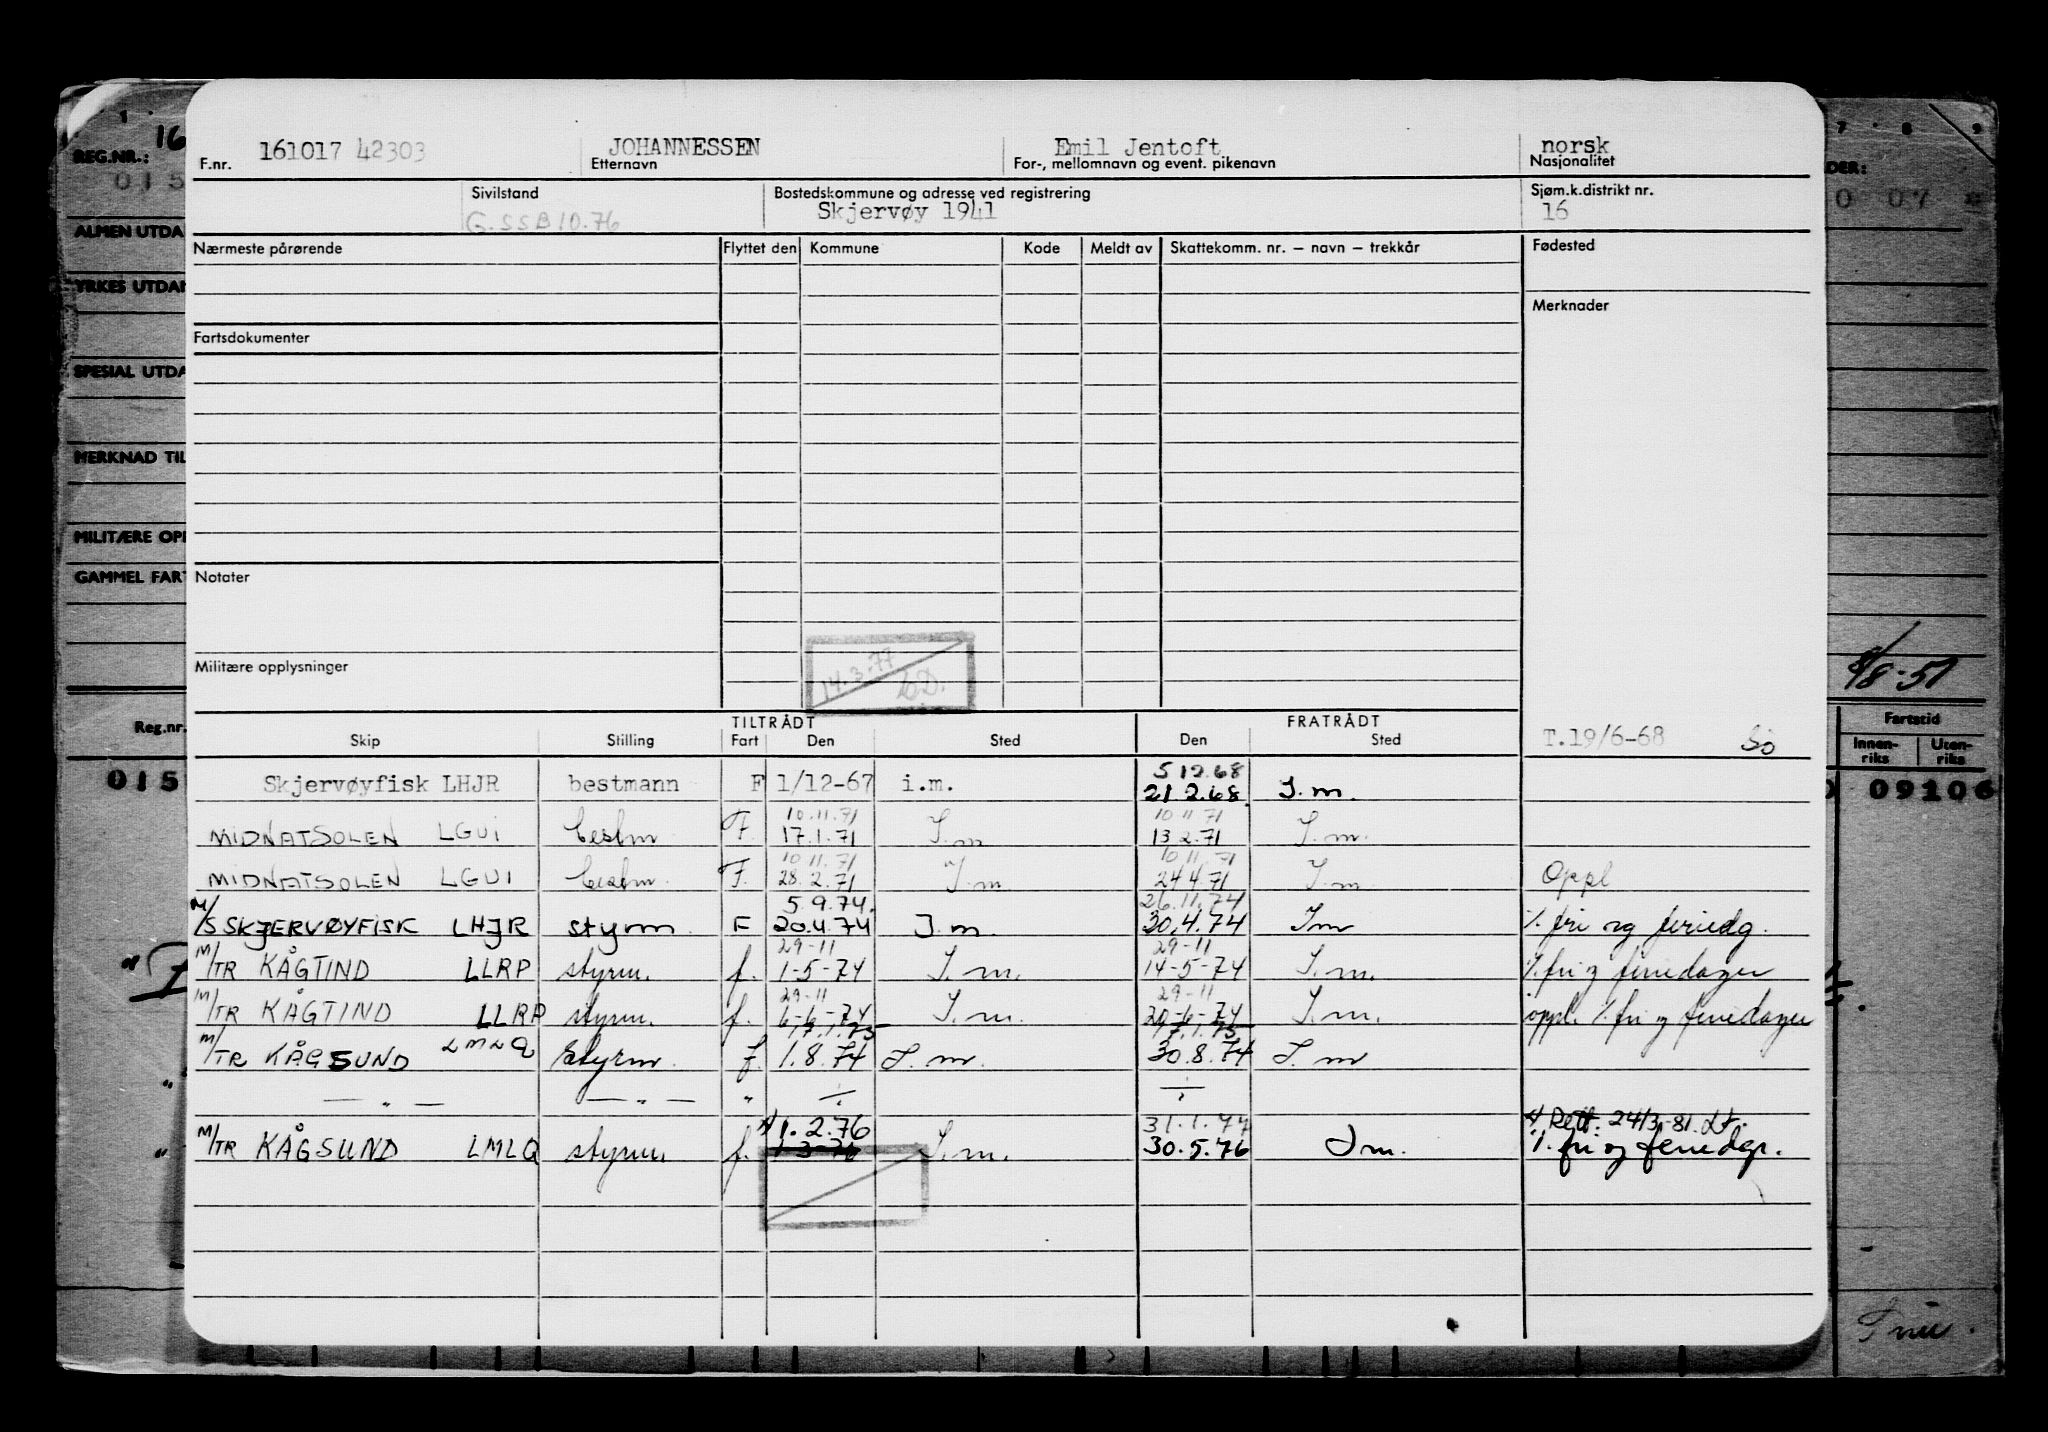 161017 42303 JOHANNESSEN Emil Jentoft norsk
F.nr. Etternavn For-, mellomnavn og event. pikenavn Nasjonalitet
Sivilstand Bostedskommune og adresse ved registrering Sjøm.k.distrikt nr.
G.SSB10.76 Skjervøy 1941 16
Nærmeste pårørende Flyttet den Kommune Kode Meldt av Skattekomm. nr. – navn – trekkår Fødested
Merknader
Fartsdokumenter
Notater
Militære opplysninger
14.3-77
TILTRÅDT FRATRÅDT
Skip Stilling Fart Den Sted Den Sted T.19/6-68
5 12.68
Skjervøyfisk LHJR bestmann F 1/12-67 i.m. 21 2.68 I.m.
10.11.71 10 11 71
MIDNATSOLEN LGUI bestm F. 17.1.71 I.m 13 2.71 I.m.
10 11.71 10 11.71
MIDNATSOLEN LGUI bestm. F. 28.2.71 I.m. 24 4 71 I.m Oppl
5.9.74. 26.11.74
M/S SKJERVØYFISK LHJR styrm F 20.4.74 I.m. 30.4.74 Im ./. fri og feriedg.
29-11 29-11
M/TR KÅGTIND LLRP styrm. f. 1-5-74 I.m. 14-5-74 I.m. ./. fri og feriedager
29-11 29-11
M/TR KÅGTIND LLRP styrm. f. 6-6-74 I.m. 20-6-74 I.m. oppl. ./. fri og feriedager
17.1.75 17.1.75
M/TR KÅGSUND LMLQ styrm. f. 1.8.74 I.m. 30.8.74 I.m
— " — — " — " ÷ ÷
1.2.76 31.1.77 Rett. 24/3-81.
M/TR KÅGSUND LMLQ styrm. f. 1-3-76 I.m. 30.5.76 Im. ./. fri og feriedgr.
REG.NR.: 16
015
ALMEN UTDA
YRKES UTDAN
SPESIAL UTDA
MERKNAD TIL
MILITÆRE OPP
GAMMEL FART
Reg.nr.
015
7 8 9
DER:
0 07
8/8-51
Fartstid
Innen-riks Uten-riks
09106